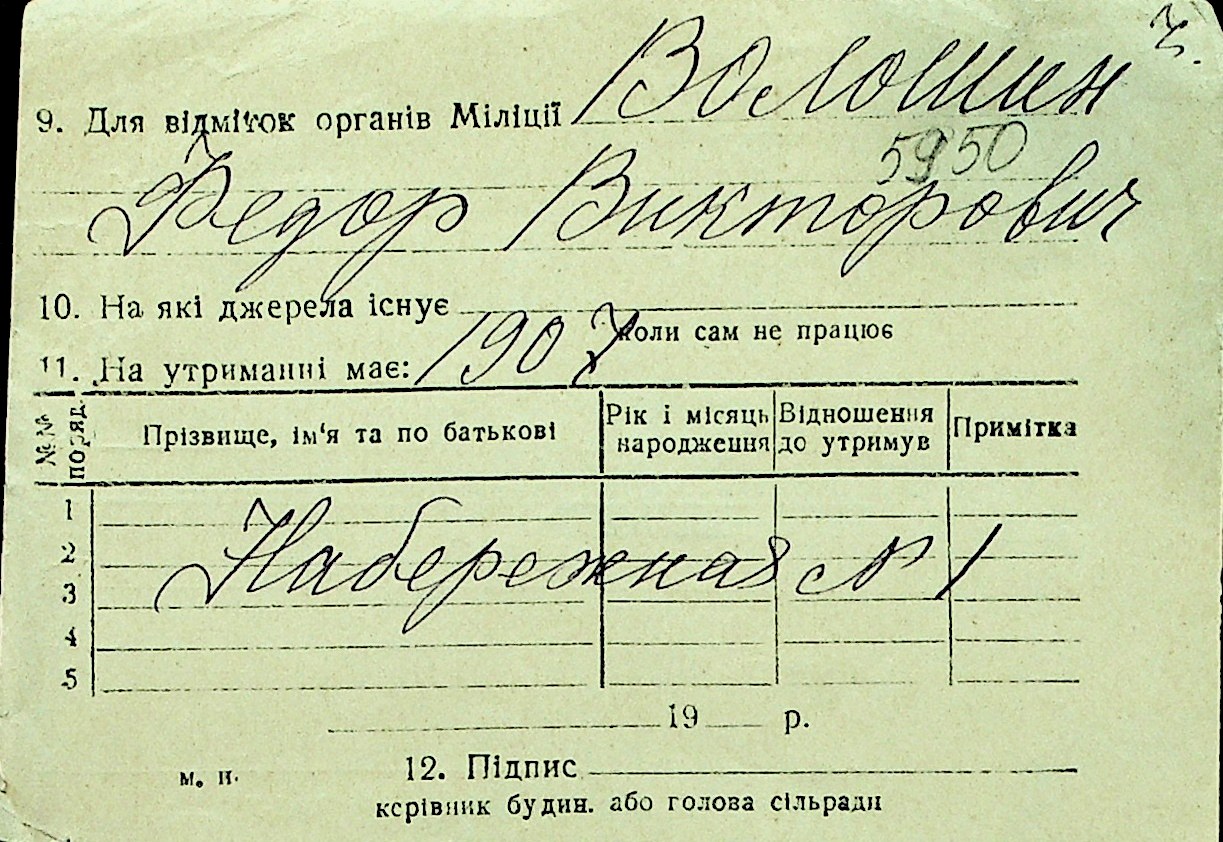 З.
9. Для відміток органів Міліції Волошин
5950
Федор Викторович
10. На які джерела існує
коли сам не працює
11. На утриманні має: 1907
№№ поряд.
Прізвище, ім'я та по батькові
Рік і місяць народження
Відношення до утримув
Примітка
1
2
Набережная № 1
3
4
5
19 р.
м. п.
12. Підпис
керівник будин. або голова сільради